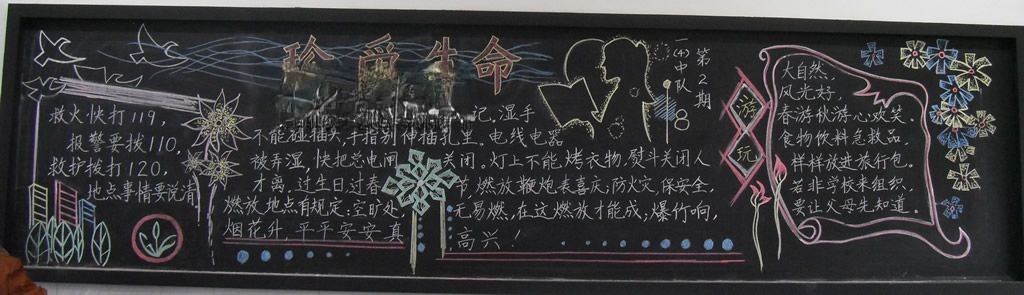 珍爱生命
一(4)中队
第2期
8
救火快打119,
报警要拨110,
救护拨打120,
地点事情要说清
记,湿手
不能碰插头,手指别伸插孔里。电线电器
被弄湿,快把总电闸关闭。灯上不能烤衣物,熨斗关闭人
才离。过生日过春节,燃放鞭炮表喜庆;防火灾,保安全,
燃放地点有规定:空旷处,无易燃,在这燃放才能成;爆竹响,
烟花升,平平安安真高兴!
游玩
大自然,
风光好,
春游秋游心欢笑、
食物饮料急救品,
样样放进旅行包。
若非学校来组织,
要让父母先知道。